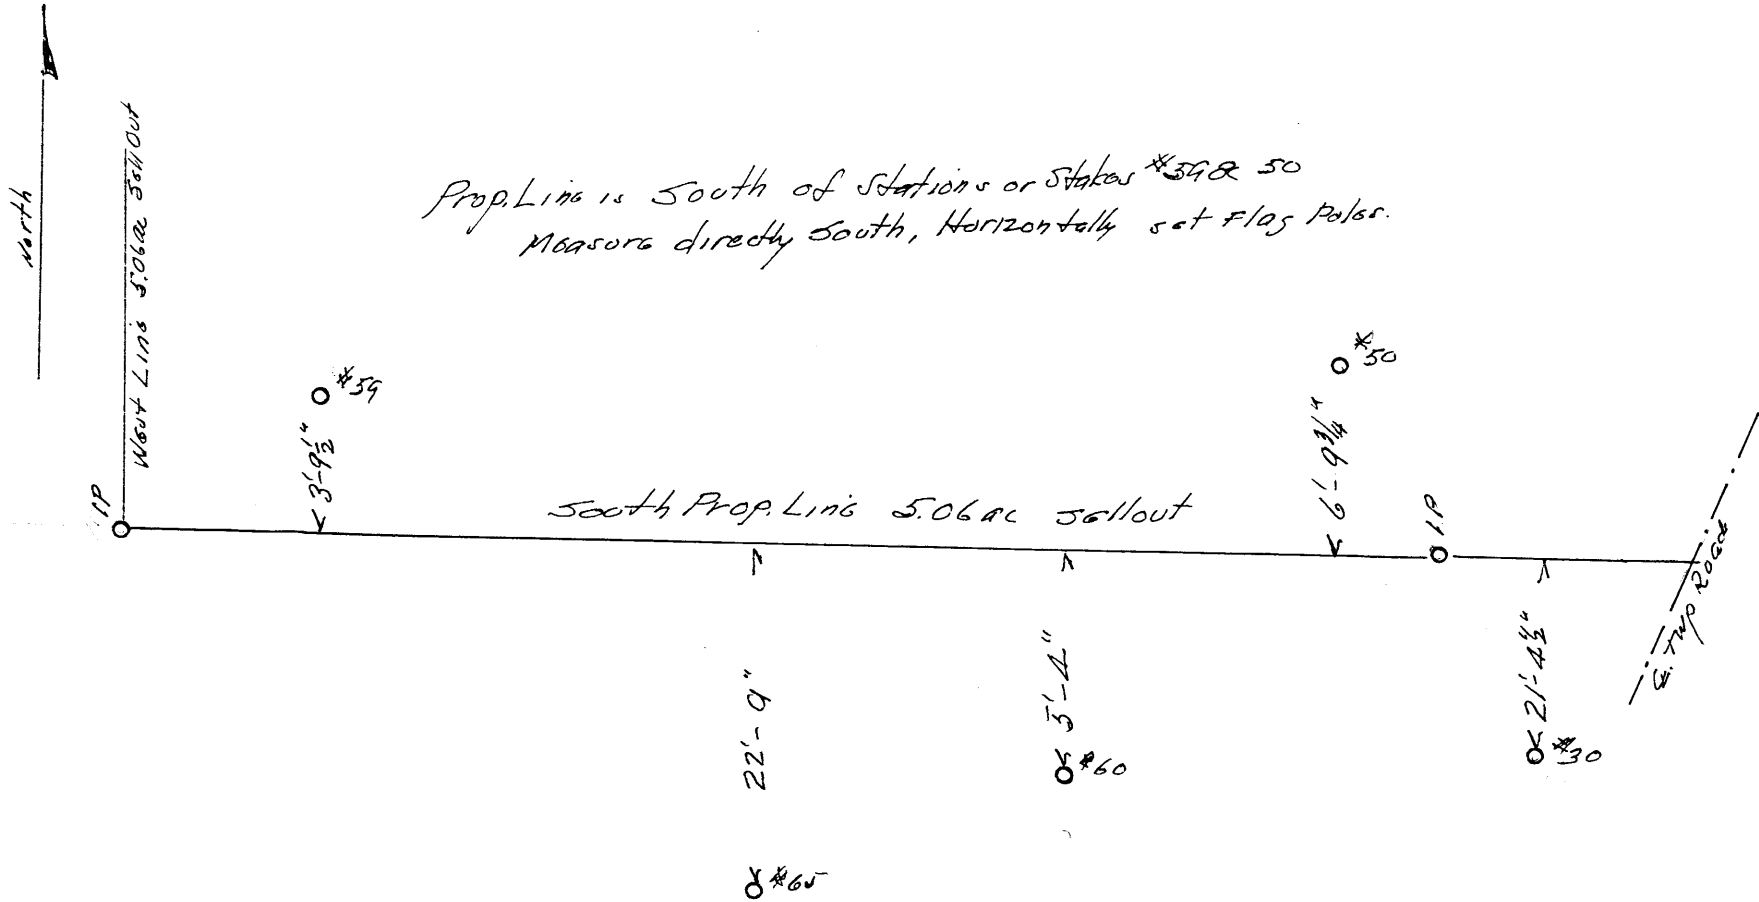 North
West Line 5.06ac Sellout
Prop. Line is South of Stations or Stakes #59 & 50
Measure directly South, Horizontally set Flag Poles.
#59
#50
3'-9½"
6'-9¾"
IP
South Prop. Line 5.06 ac Sellout
I.P
22'-9"
5'-4"
21'-4½"
#60
#30
#65
Twp Road